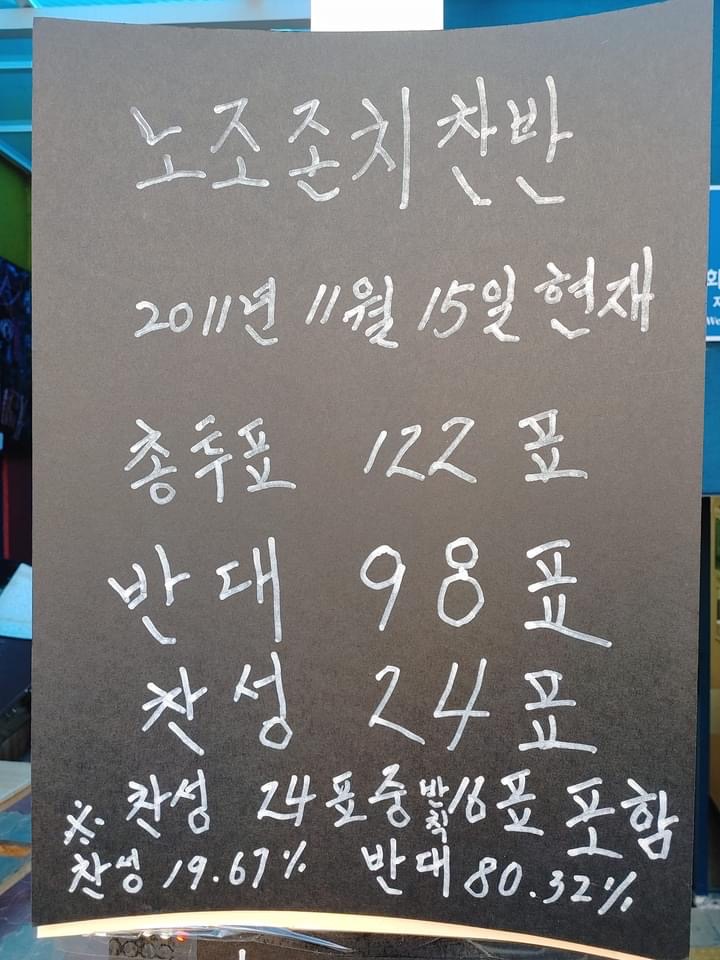 노조존치찬반
2011년 11월 15일 현재
총투표 122 표
반대 98표
찬성 24표
※ 찬성 24표중 반칙 16표 포함
찬성 19.67% 반대 80.32%